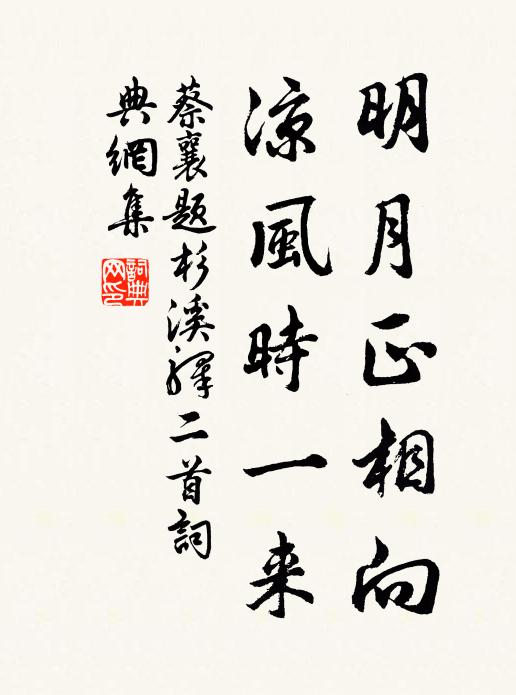 明月正相向
凉風時一来
蔡襄题杉溪驛二首詞
典網集
詞典
网印